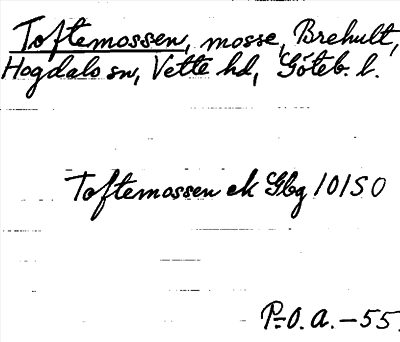 Toftemossen, mosse, Brehult,
Hogdals sn, Vette hd, Göteb. l.
Toftemossen ek Gbg 101SO
P-O.A.-55.